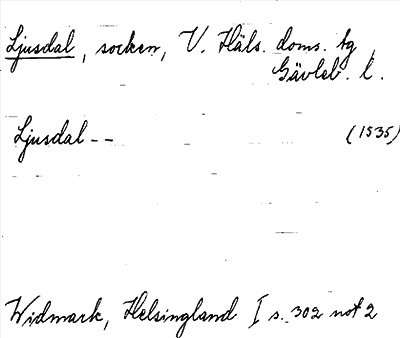 Ljusdal, socken, V. Häls. doms. hg
Gävleb. l.
Ljusdal -- (1535)
Widmark, Helsingland I s. 302 not 2